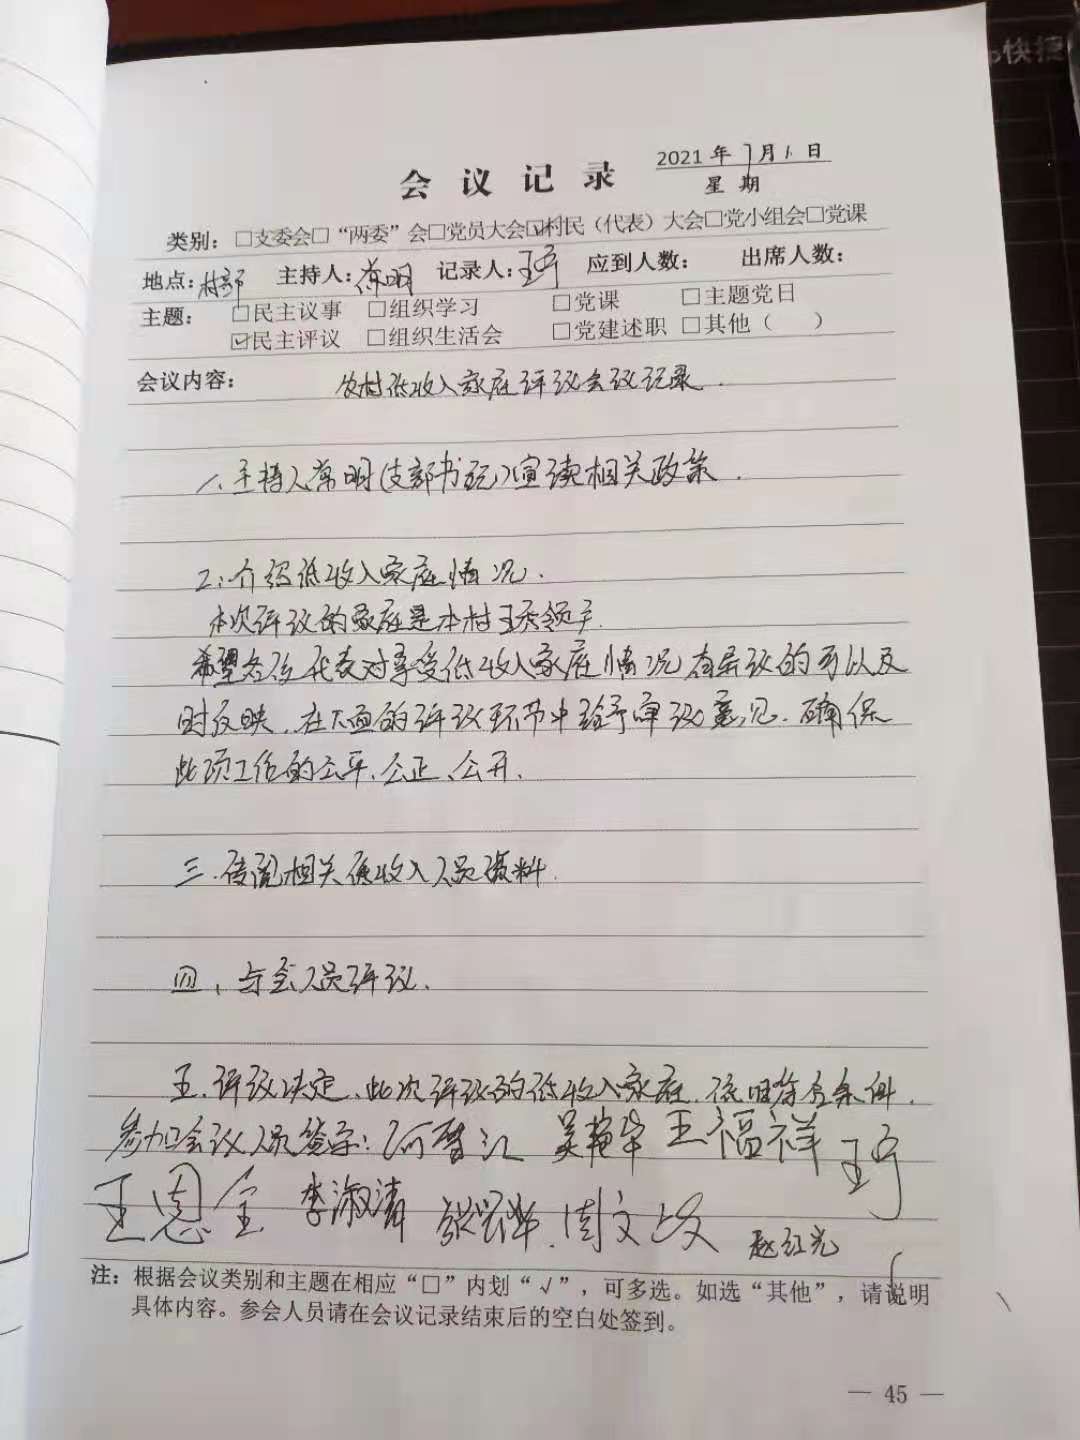 快捷
会议记录
2021年7月1日
星期
类别：□支委会□“两委”会□党员大会☑村民（代表）大会□党小组会□党课
地点：村部 主持人：常明 记录人：王宁 应到人数： 出席人数：
主题： □民主议事 □组织学习 □党课 □主题党日
☑民主评议 □组织生活会 □党建述职 □其他（ ）
会议内容： 农村低收入家庭评议会议记录．
一．主持人常明（支部书记）宣读相关政策．
2：介绍低收入家庭情况．
本次评议的家庭是本村王秀领户．
希望各位代表对享受低收入家庭情况有异议的可以及
时反映．在下面的评议环节中给予审议意见．确保
此项工作的公平、公正、公开．
三．传阅相关低收入人员资料．
四、与会人员评议．
五．评议决定、此次评议的低收入家庭．符合条件．
参加会议人员签字： 王福祥 王宁
王恩全 李淑清 周文 赵红光
注：根据会议类别和主题在相应“□”内划“√”，可多选。如选“其他”，请说明
具体内容。参会人员请在会议记录结束后的空白处签到。
— 45 —